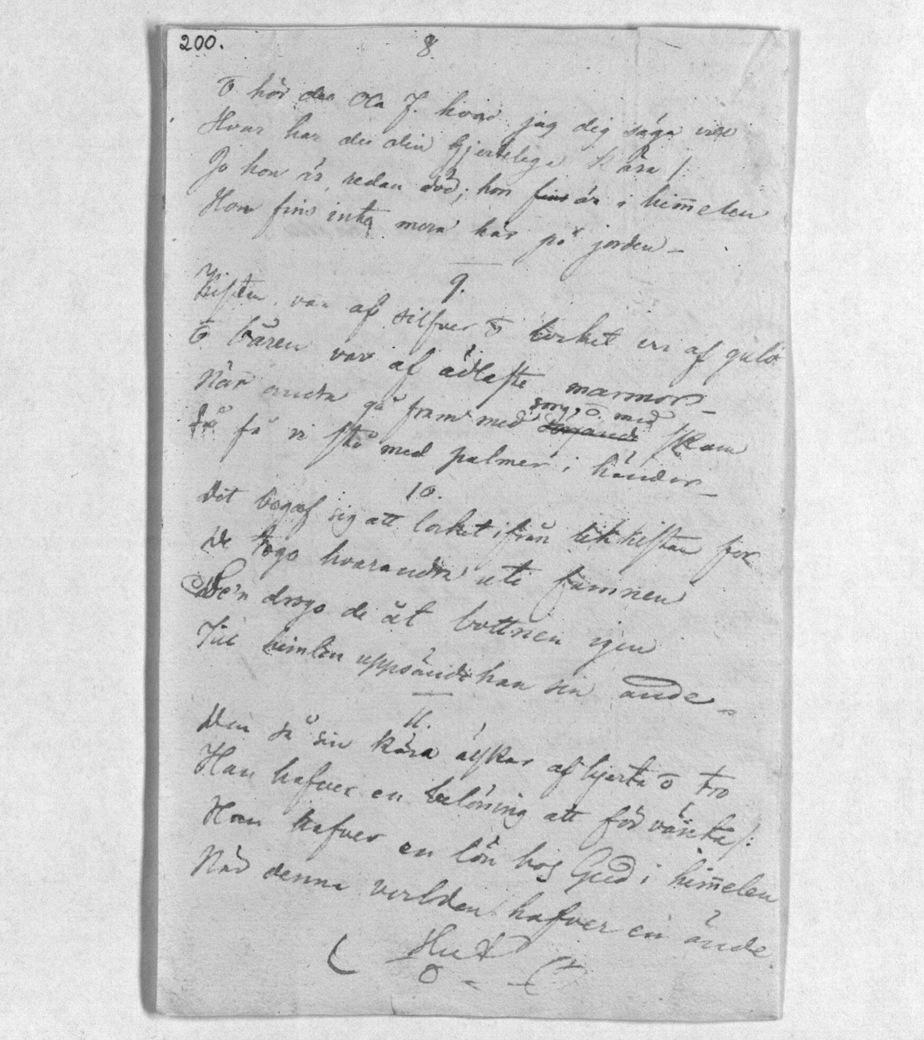 200.
8.
Ō hör du Ola J. hvad jag dig säga vill
Hvar har du din hjerteliga kära /:
Jo hon är redan död; hon fins är i him̄elen
Hon fins inte mera här på jorden –
9.
Kistan var af silfver ō locket var af guld
Ō båren var af ädlaste marmor –
sorg, ō med
När andra gå fram med skam
Så få vi stå med palmer i händer –
10.
Det begaf sig att locket ifrån likkistan for
De togo hvarandra uti famnen
Se'n drogo de åt bottnen igen
Till himlen uppsände han sin ande –
11.
Den så sin kära älskar af hjerta ō tro
Han hafver en belöning att förvänta /:
Han hafver en lön hos Gud i him̄elen
När denna verlden hafver en ände.
Slut